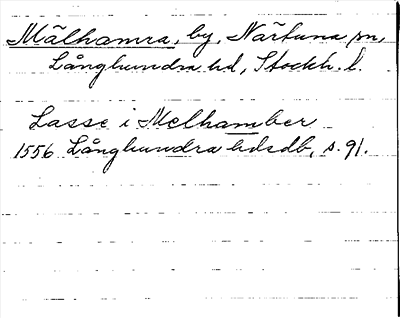 Mälhamra, by, Närtuna sn,
Långhundra hd, Stockh. l.
Lasse i Melhamber
1556 Långhundra hdsdb, s. 91.